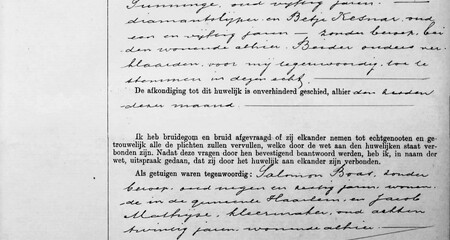 oud vijftig jaren,
diamantslijper en Betje Kesnar, oud
een en vijftig jaren, zonder beroep, bei
den wonende alhier. Beider ouders ver
klaarden voor mij tegenwoordig, toe te
stemmen in dezen echt.
De afkondiging tot dit huwelijk is onverhinderd geschied, alhier den
dezer maand.
Ik heb bruidegom en bruid afgevraagd of zij elkander nemen tot echtgenooten en ge-
trouwelijk alle de plichten zullen vervullen, welke door de wet aan den huwelijken staat ver-
bonden zijn. Nadat deze vragen door hen bevestigend beantwoord werden, heb ik, in naam der
wet, uitspraak gedaan, dat zij door het huwelijk aan elkander zijn verbonden.
Als getuigen waren tegenwoordig: Salomon Boas, zonder
beroep, oud negen en zestig jaren, wonen
de in de gemeente Haarlem, en Jacob
kleermaker, oud acht en
twintig jaren, wonende alhier.